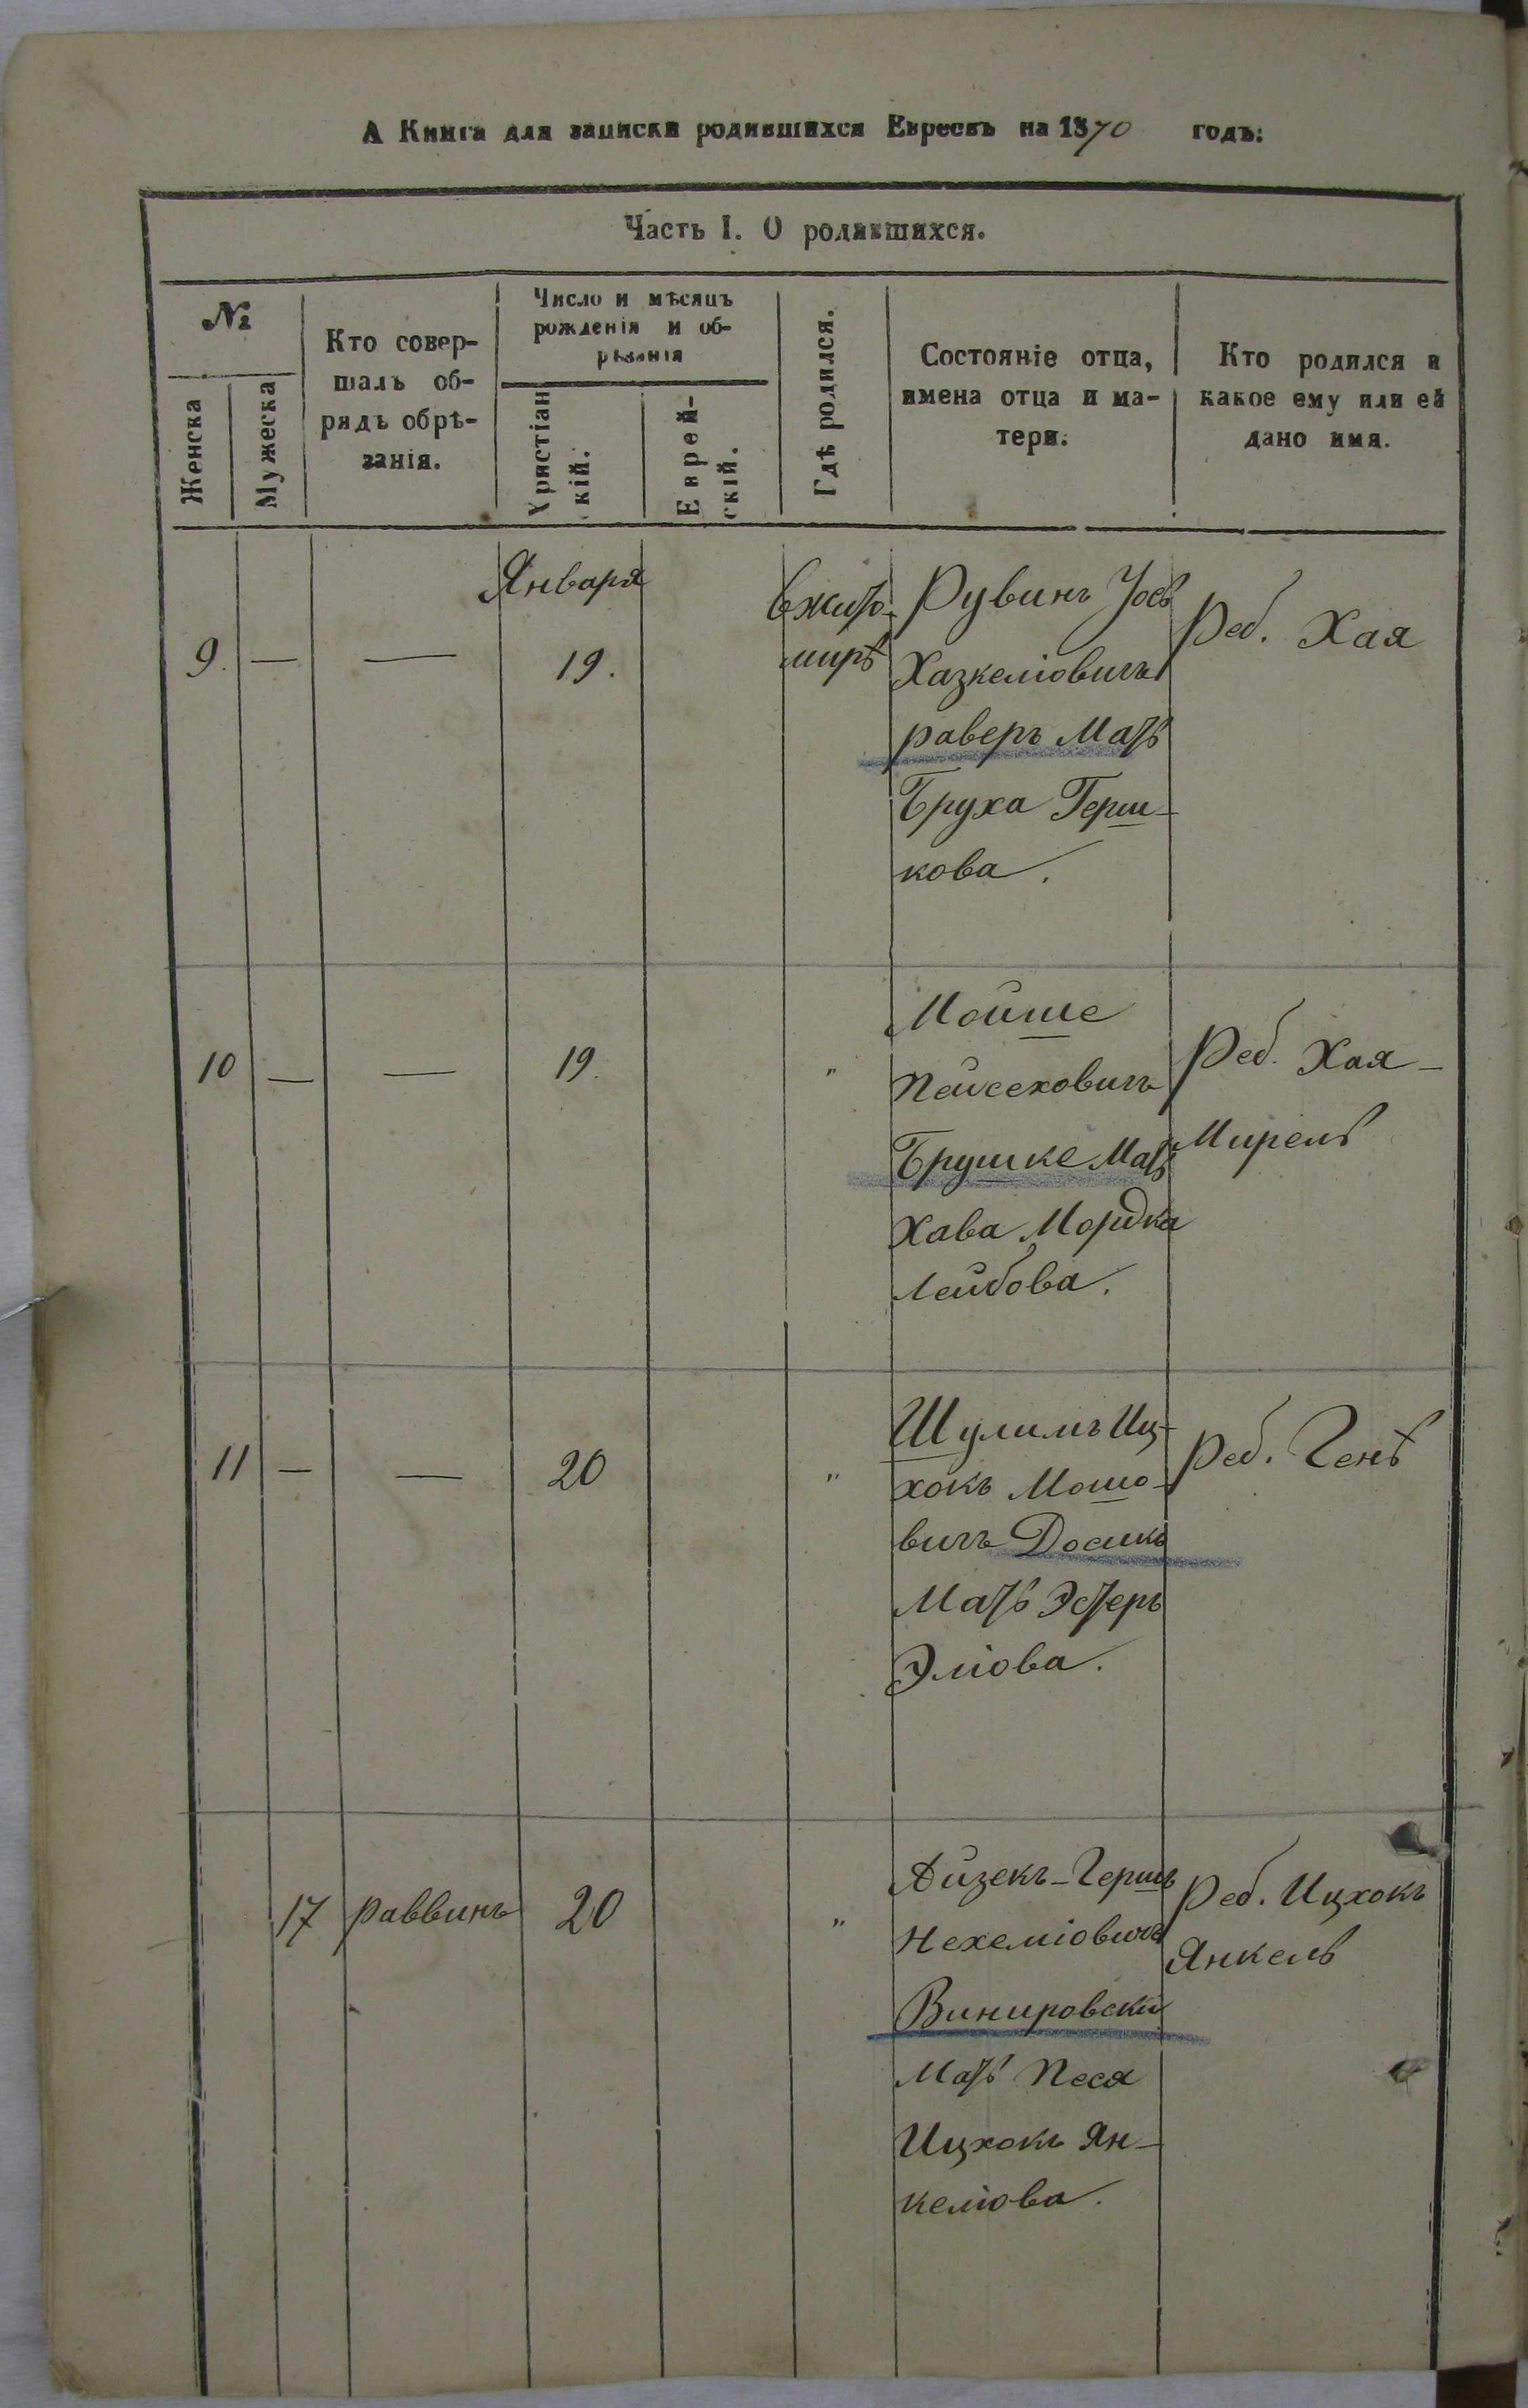 А Книга для записки родившихся Евреевъ на 1870 годъ:
Часть I. О родившихся.
№
Женска
Мужеска
Кто совер-
шалъ об-
рядъ обрѣ-
занія.
Число и мѣсяцъ
рожденія и об-
рѣзанія
Христіан
скій.
Еврей-
скій.
Гдѣ родился.
Состояніе отца,
имена отца и ма-
тери.
Кто родился и
какое ему или ей
дано имя.
Января
9. — — 19.
Вжито-
мирѣ
Рувинъ Іось
Хазкеліовичъ
раверъ Мать
Бруха Герш-
кова.
Реб. Хая
10 — — 19. "
Мойше
Пейсеховичъ
Брушке Мать
Хава Мордка
Лейбова.
Реб. Хая-
Мирель
11 — — 20 "
Шулимъ Иц-
хокъ Мошо-
вичъ Досикъ
Мать Эстеръ
Эліова.
Реб. Генѣ
17 раввинъ 20 "
Айзекъ-Гершъ
Нехеміовичъ
Винировскій
Мать Песя
Ицхокъ Ян-
келіова.
Реб. Ицхокъ
Янкель